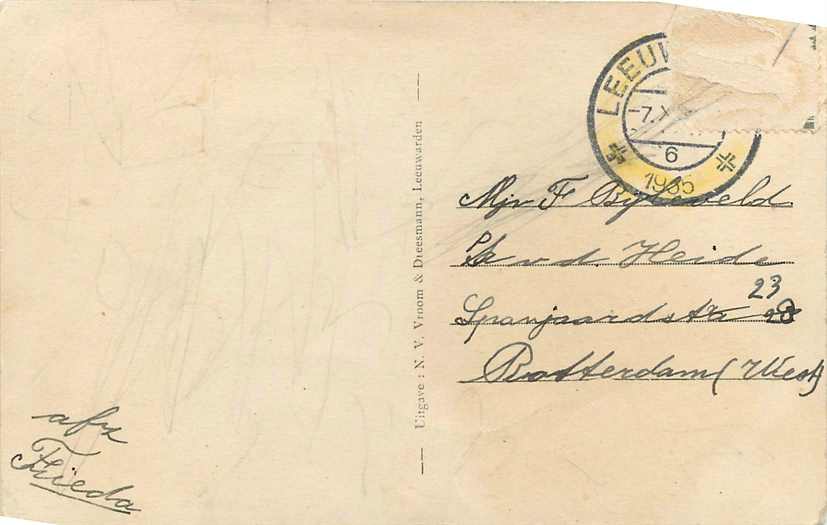 LEEUW
-7.X
6
1935
Mej. F Bijleveld
v.d. Heide
23
Spanjaardstr 28
Rotterdam (West)
Uitgave : N. V. Vroom & Dreesmann, Leeuwarden
afz
Frieda